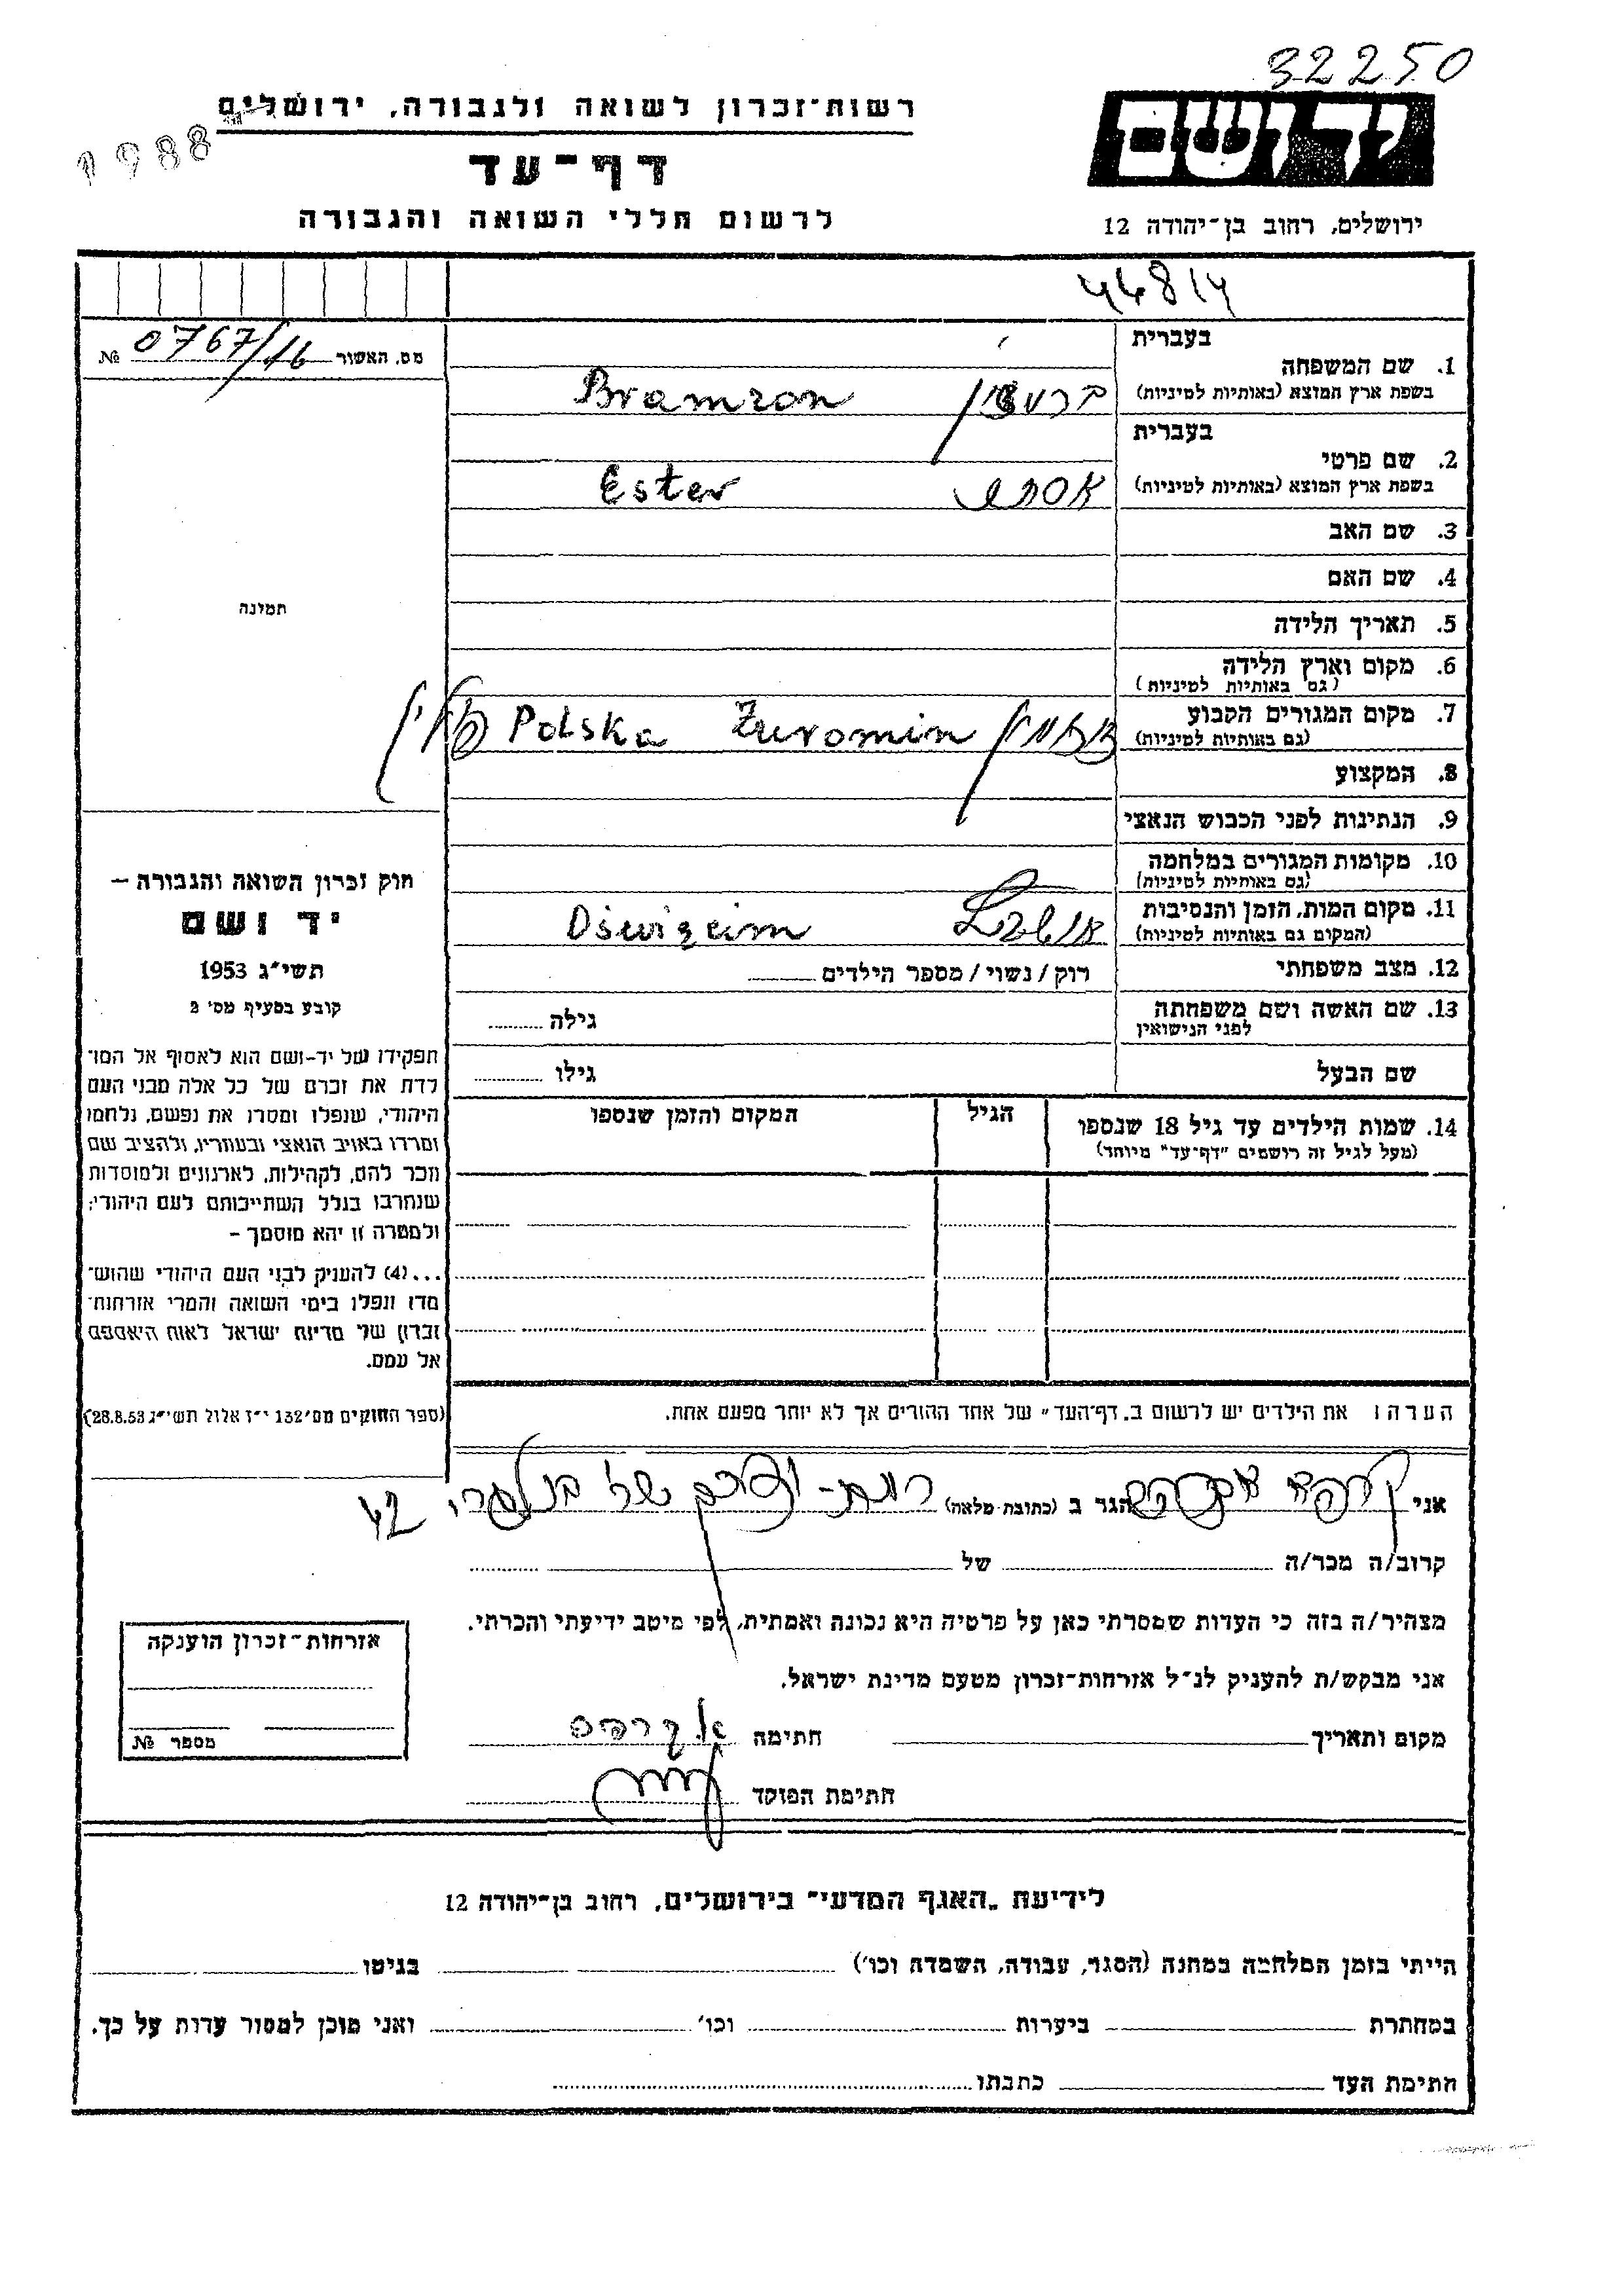 32250
יד ושם
ירושלים, רחוב בן־יהודה 12
רשות־זכרון לשואה ולגבורה, ירושלים
1988
דף־עד
לרשום חללי השואה והגבורה
מס. האשור 0767/16 №
בעברית
1. שם המשפחה
בשפת ארץ המוצא (באותיות לטיניות)
Bramzon
בעברית
2. שם פרטי
בשפת ארץ המוצא (באותיות לטיניות)
אסתר Ester
3. שם האב
4. שם האם
5. תאריך הלידה
6. מקום וארץ הלידה
(גם באותיות לטיניות)
7. מקום המגורים הקבוע
(גם באותיות לטיניות)
Żuromin Polska פולין
8. המקצוע
9. הנתינות לפני הכבוש הנאצי
10. מקומות המגורים במלחמה
(גם באותיות לטיניות)
11. מקום המות, הזמן והנסיבות
(המקום גם באותיות לטיניות)
Oświęcim
12. מצב משפחתי
רוק / נשוי / מספר הילדים
13. שם האשה ושם משפחתה
לפני הנישואין
גילה
שם הבעל
גילו
14. שמות הילדים עד גיל 18 שנספו
(מעל לגיל זה רושמים "דף־עד" מיוחד)
הגיל
המקום והזמן שנספו
תמונה
חוק זכרון השואה והגבורה –
יד ושם
תשי"ג 1953
קובע בסעיף מס' 2
תפקידו של יד-ושם הוא לאסוף אל המו־
לדת את זכרם של כל אלה מבני העם
היהודי, שנפלו ומסרו את נפשם, נלחמו
ומרדו באויב הנאצי ובעוזריו, ולהציב שם
וזכר להם, לקהילות, לארגונים ולמוסדות
שנחרבו בגלל השתייכותם לעם היהודי;
ולמטרה זו יהא מוסמך –
...(4) להעניק לבני העם היהודי שהוש־
מדו ונפלו בימי השואה והמרי אזרחות־
זכרון של מדינת ישראל לאות היאספם
אל עמם.
(ספר החוקים מס' 132 י"ז אלול תשי"ג 28.8.53)
הערה: את הילדים יש לרשום ב"דף־העד" של אחד ההורים אך לא יותר מפעם אחת.
אני
הגר ב (כתובת מלאה) רמת- 42
קרוב/ה מכר/ה של
מצהיר/ה בזה כי העדות שמסרתי כאן על פרטיה היא נכונה ואמתית, לפי מיטב ידיעתי והכרתי.
אני מבקש/ת להעניק לנ"ל אזרחות־זכרון מטעם מדינת ישראל.
מקום ותאריך חתימה
חתימת הפוקד
אזרחות־זכרון הוענקה
מספר №
לידיעת "האגף המדעי" בירושלים, רחוב בן־יהודה 12
הייתי בזמן המלחמה במחנה (הסגר, עבודה, השמדה וכו') בגיטו
במחתרת ביערות וכו' ואני מוכן למסור עדות על כך.
חתימת העד כתבתו